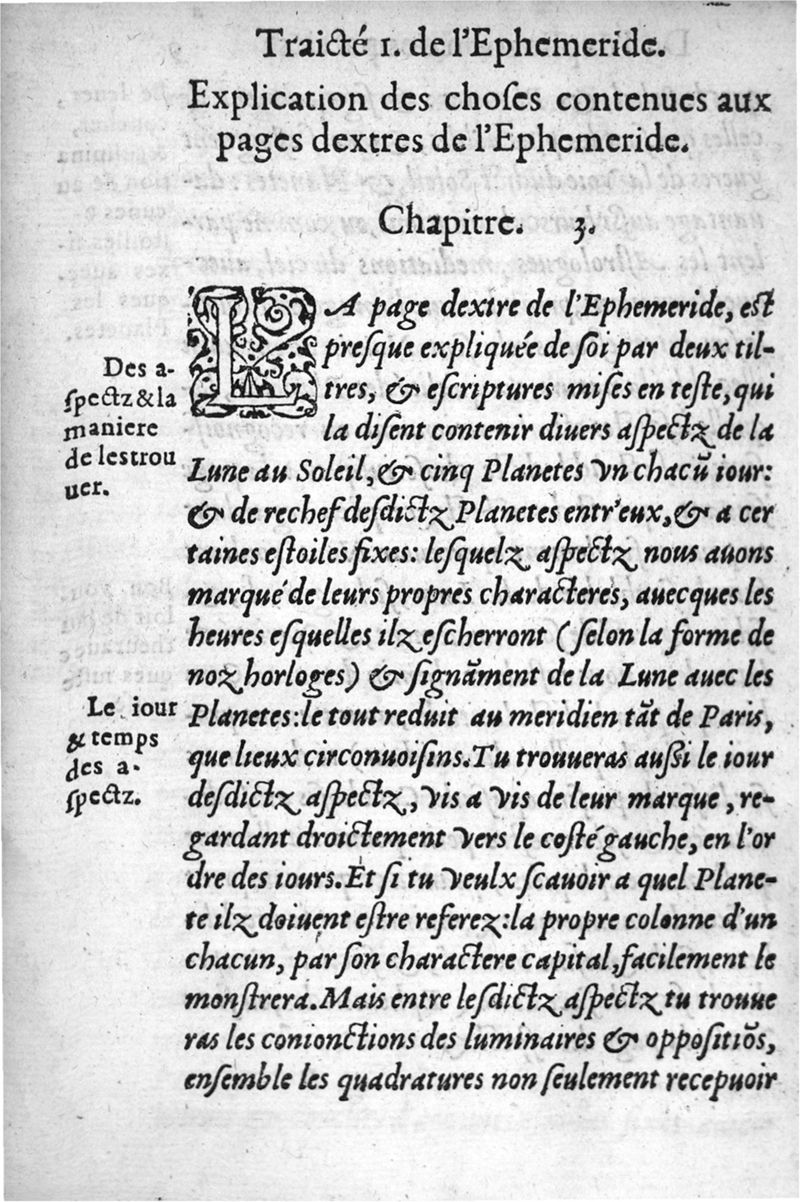 Traicté 1. de l'Ephemeride.
Explication des choſes contenues aux
pages dextres de l'Ephemeride.
Chapitre. 3.
LA page dextre de l'Ephemeride, eſt
preſque expliquée de ſoi par deux til-
tres, & eſcriptures miſes en teſte, qui
la diſent contenir diuers aſpectz de la
Lune au Soleil, & cinq Planetes vn chacũ iour:
& de rechef deſdictz Planetes entr'eux, & a cer
taines eſtoiles fixes: leſquelz aſpectz nous auons
marqué de leurs propres characteres, auecques les
heures eſquelles ilz eſcherront (ſelon la forme de
noz horloges) & ſignãment de la Lune auec les
Planetes: le tout reduit au meridien tãt de Paris,
que lieux circonuoiſins. Tu trouueras auſſi le iour
deſdictz aſpectz, vis a vis de leur marque, re-
gardant droictement vers le coſté gauche, en l'or
dre des iours. Et ſi tu veulx ſcauoir a quel Plane-
te ilz doiuent eſtre referez: la propre colonne d'un
chacun, par ſon charactere capital, facilement le
monſtrera. Mais entre leſdictz aſpectz tu trouue
ras les conionctions des luminaires & oppoſitiõs,
enſemble les quadratures non ſeulement recepuoir
Des a-
ſpectz & la
maniere
de les trou
uer.
Le iour
& temps
des a-
ſpectz.